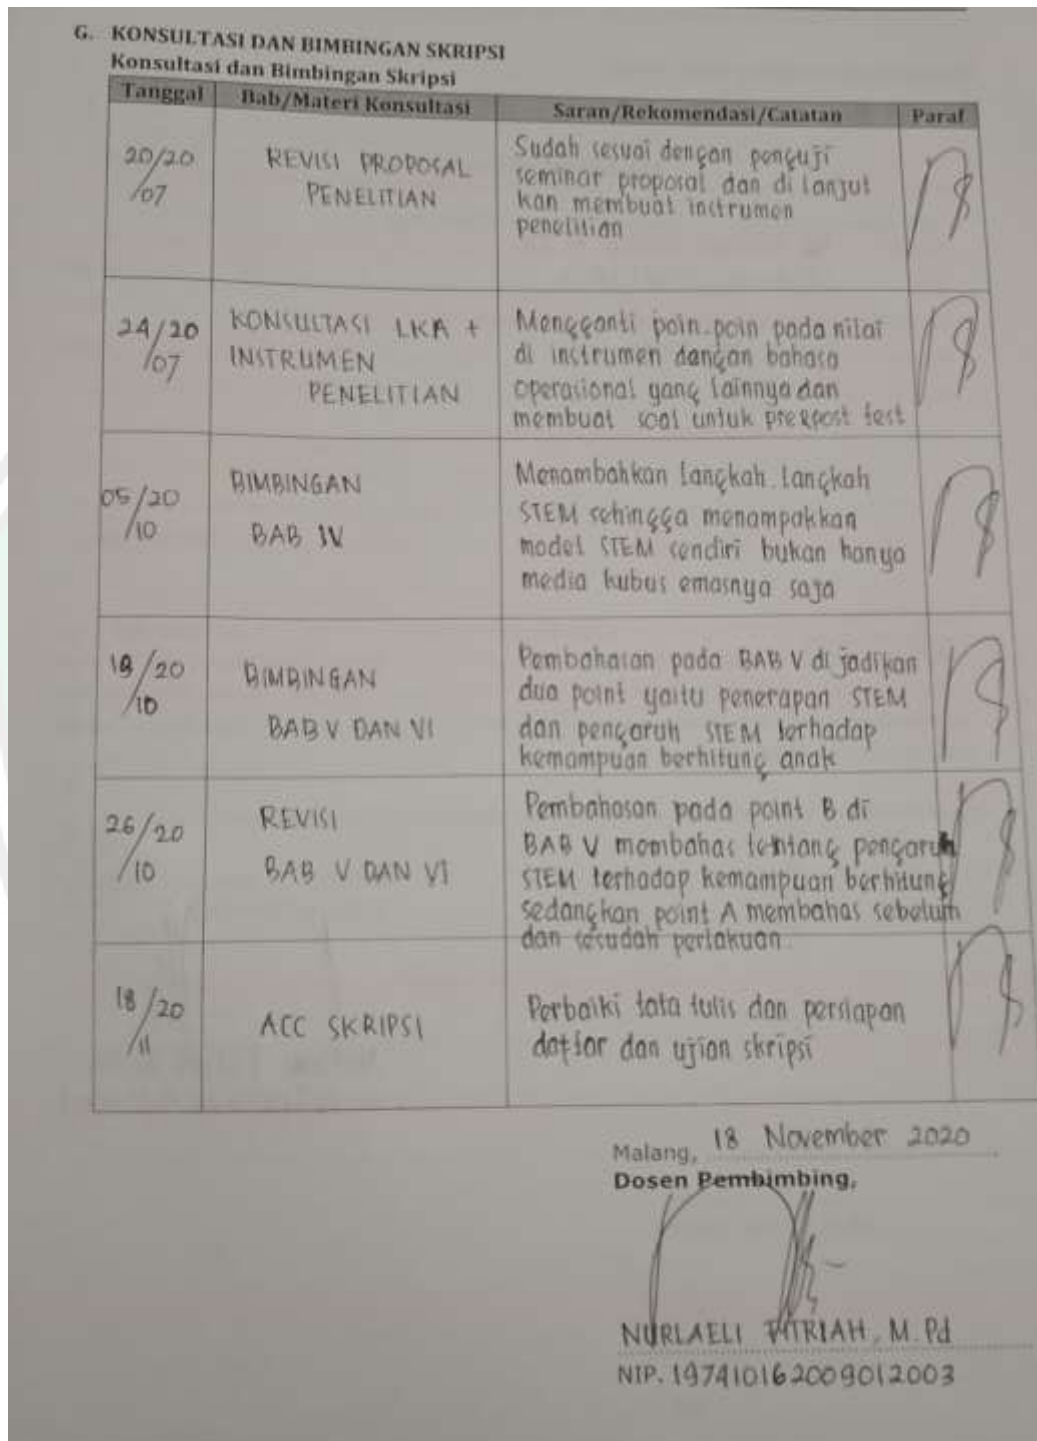 G. KONSULTASI DAN BIMBINGAN SKRIPSI
Konsultasi dan Bimbingan Skripsi
Tanggal Bab/Materi Konsultasi Saran/Rekomendasi/Catatan Paraf
20/20
/07
REVISI PROPOSAL
PENELITIAN
Sudah sesuai dengan penguji
seminar proposal dan di lanjut
kan membuat instrumen
penelitian
24/20
/07
KONSULTASI LKA +
INSTRUMEN
PENELITIAN
Mengganti poin-poin pada nilai
di instrumen dengan bahasa
operasional yang lainnya dan
membuat soal untuk pre&post test
05/20
/10
BIMBINGAN
BAB IV
Menambahkan langkah-langkah
STEM sehingga menampakkan
model STEM sendiri bukan hanya
media kubus emasnya saja
/20
/10
BIMBINGAN
BAB V DAN VI
Pembahasan pada BAB V di jadikan
dua point yaitu penerapan STEM
dan pengaruh STEM terhadap
kemampuan berhitung anak
26/20
/10
REVISI
BAB V DAN VI
Pembahasan pada point B di
BAB V membahas tentang pengaruh
STEM terhadap kemampuan berhitung
sedangkan point A membahas sebelum
dan sesudah perlakuan
18/20
/11
ACC SKRIPSI
Perbaiki tata tulis dan persiapan
daftar dan ujian skripsi
Malang, 18 November 2020
Dosen Pembimbing,
NURLAELI FITRIAH, M.Pd
NIP. 197410162009012003